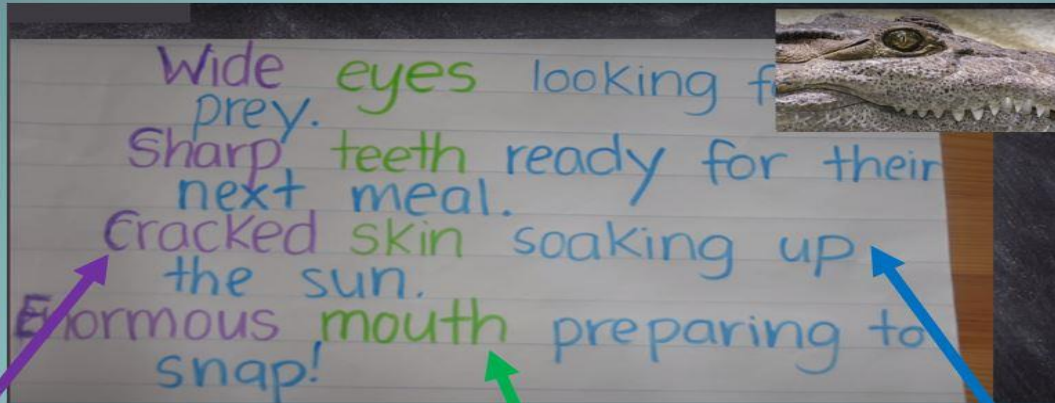 Wide eyes looking
prey.
Sharp teeth ready for their
next meal.
Cracked skin soaking up
the sun.
Enormous mouth preparing to
snap!